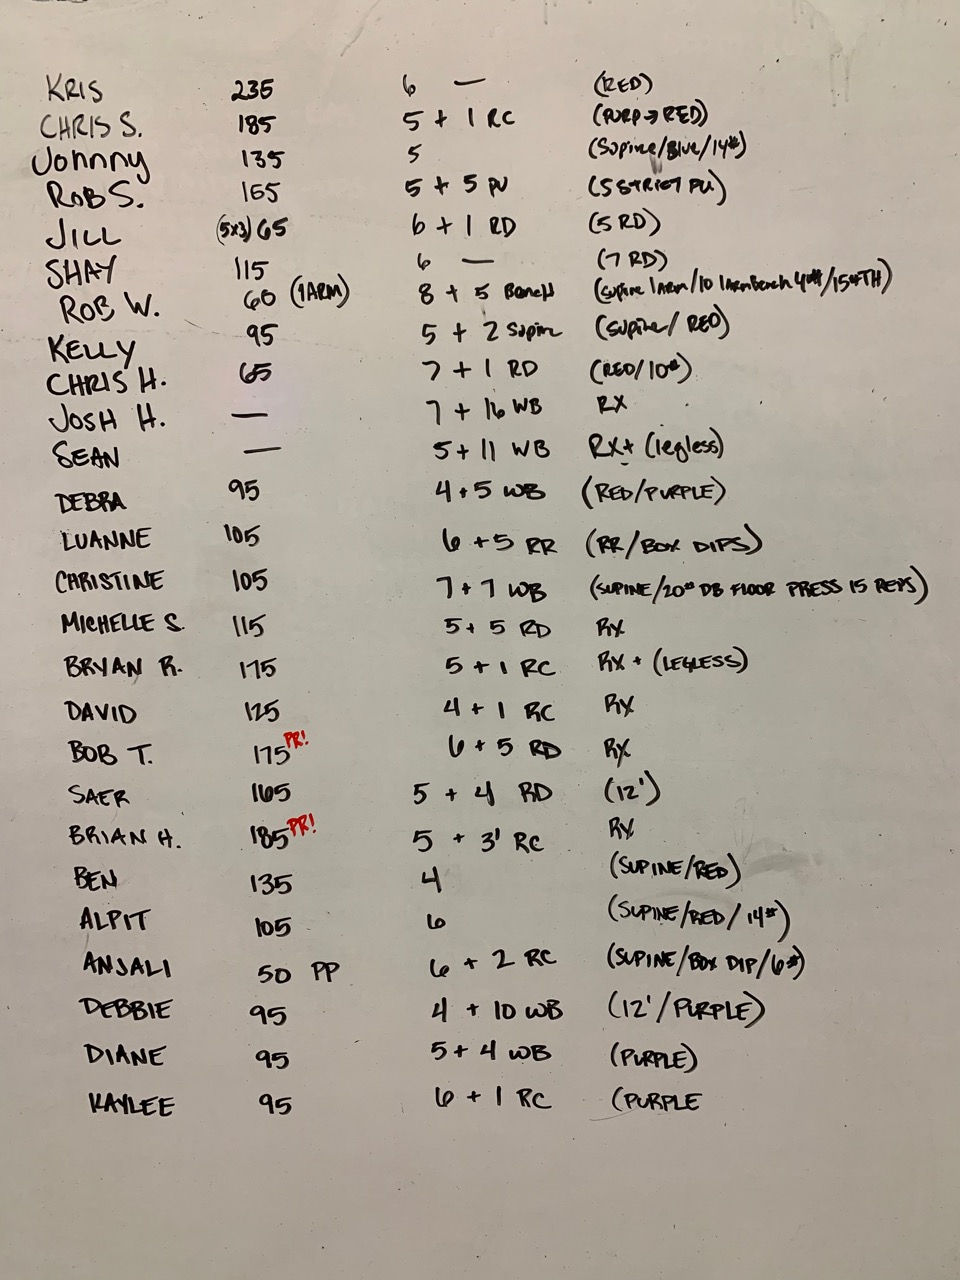 KRIS 235 6 — (RED)
CHRIS S. 185 5 + 1 RC (PURP → RED)
Johnny 135 5 (Supine/Blue/14#)
ROB S. 165 5 + 5 PU (5 STRICT PU)
JILL (5x3) 65 6 + 1 RD (5 RD)
SHAY 115 6 — (7 RD)
ROB W. 60 (1 ARM) 8 + 5 Bench (supine 1 Arm/10 1 Arm Bench 4#/15#TH)
KELLY 95 5 + 2 Supine (Supine/ RED)
CHRIS H. 65 7 + 1 RD (RED/10#)
JOSH H. — 7 + 16 WB RX
SEAN — 5 + 11 WB RX+ (legless)
DEBRA 95 4 + 5 WB (RED/PURPLE)
LUANNE 105 6 + 5 RR (RR/BOX DIPS)
CHRISTINE 105 7 + 7 WB (SUPINE/20# DB FLOOR PRESS 15 REPS)
MICHELLE S. 115 5 + 5 RD RX
BRYAN R. 175 5 + 1 RC RX + (LEGLESS)
DAVID 125 4 + 1 RC RX
BOB T. 175 PR! 6 + 5 RD RX
SAER 165 5 + 4 RD (12')
BRIAN H. 185 PR! 5 + 3' RC RX
BEN 135 4 (SUPINE/RED)
ALPIT 105 6 (SUPINE/RED/14#)
ANJALI 50 PP 6 + 2 RC (SUPINE/BOX DIP/6#)
DEBBIE 95 4 + 10 WB (12'/PURPLE)
DIANE 95 5 + 4 WB (PURPLE)
KAYLEE 95 6 + 1 RC (PURPLE